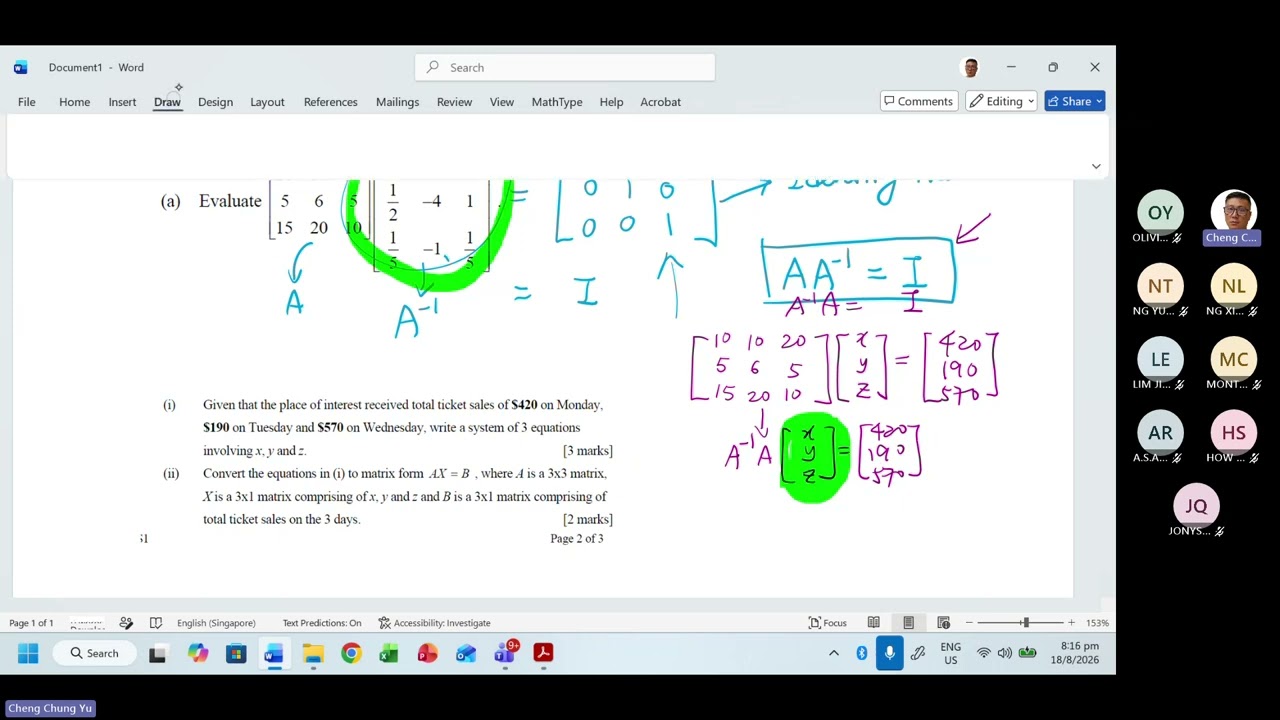 Document1 - Word
Search
File Home Insert Draw Design Layout References Mailings Review View MathType Help Acrobat
Comments Editing Share
(a) Evaluate
5 6 5
15 20 10
1/2 -4 1
1/5 -1 1/5
=
0 1 0
0 0 1
A
A⁻¹
= I
A A⁻¹ = I
A⁻¹A = I
10 10 20
5 6 5
15 20 10
x
y
z
=
420
190
570
A⁻¹ A
x
y
z
=
420
190
570
(i) Given that the place of interest received total ticket sales of $420 on Monday,
$190 on Tuesday and $570 on Wednesday, write a system of 3 equations
involving x, y and z. [3 marks]
(ii) Convert the equations in (i) to matrix form AX = B , where A is a 3x3 matrix,
X is a 3x1 matrix comprising of x, y and z and B is a 3x1 matrix comprising of
total ticket sales on the 3 days. [2 marks]
Page 2 of 3
Page 1 of 1 English (Singapore) Text Predictions: On Accessibility: Investigate Focus 153%
Search
9+
ENG
US
8:16 pm
18/8/2026
OY
OLIVI...
Cheng C...
NT
NG YU...
NL
NG XI...
LE
LIM JI...
MC
MONT...
AR
A.S.A...
HS
HOW ...
JQ
JONYS...
Cheng Chung Yu